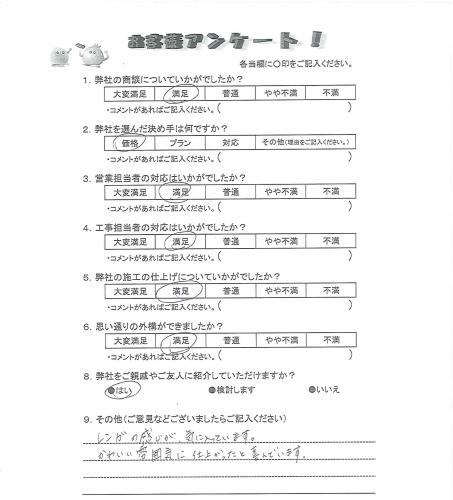 お客様アンケート！
各当欄に〇印をご記入ください。
1．弊社の商談についていかがでしたか？
大変満足 満足 普通 やや不満 不満
・コメントがあればご記入ください。（ ）
2．弊社を選んだ決め手は何ですか？
価格 プラン 対応 その他（理由をご記入ください。）
・コメントがあればご記入ください。（ ）
3．営業担当者の対応はいかがでしたか？
大変満足 満足 普通 やや不満 不満
・コメントがあればご記入ください。（ ）
4．工事担当者の対応はいかがでしたか？
大変満足 満足 普通 やや不満 不満
・コメントがあればご記入ください。（ ）
5．弊社の施工の仕上げについていかがでしたか？
大変満足 満足 普通 やや不満 不満
・コメントがあればご記入ください。（ ）
6．思い通りの外構ができましたか？
大変満足 満足 普通 やや不満 不満
・コメントがあればご記入ください。（ ）
8．弊社をご親戚やご友人に紹介していただけますか？
●はい ●検討します ●いいえ
9．その他（ご意見などございましたらご記入ください）
レンガの感じが、気に入っています。
かわいい雰囲気に仕上がったと喜んでいます。